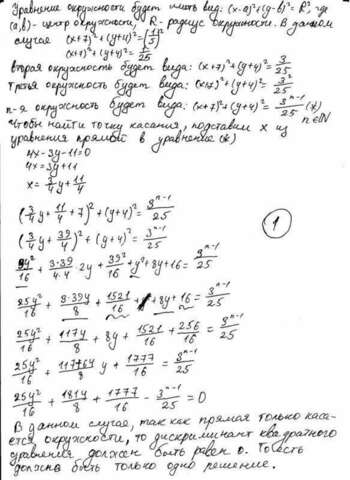 Уравнение окружности будет иметь вид: (x-a)²+(y-b)²= R², где
(a,b)- центр окружности, R- радиус окружности. В данном
случае (x+7)²+(y+4)²=(1/5)²
(x+7)²+(y+4)²=1/25
вторая окружность будет вида: (x+7)²+(y+4)²=3/25
Третья окружность будет вида: (x+7)²+(y+4)²=3²/25
n-я окружность будет вида: (x+7)²+(y+4)²=3ⁿ⁻¹/25 (*) n∈N
Чтобы найти точку касания, подставим x из
уравнения прямой в уравнение (*)
4x-3y-11=0
4x=3y+11
x=3/4y+11/4
(3/4y+11/4+7)²+(y+4)²=3ⁿ⁻¹/25
(3/4y+39/4)²+(y+4)²=3ⁿ⁻¹/25
1
9y²/16+3·39/4·4·2y+39²/16+y²+8y+16=3ⁿ⁻¹/25
25y²/16+3·39y/8+1521/16+8y+16=3ⁿ⁻¹/25
25y²/16+117y/8+8y+1521/16+256/16=3ⁿ⁻¹/25
25y²/16+117+64/8y+1777/16=3ⁿ⁻¹/25
25y²/16+181y/8+1777/16-3ⁿ⁻¹/25=0
В данном случае, так как прямая только каса-
ется окружности, то дискриминант квадратного
уравнения должен быть равен 0. То есть
должно быть только одно решение.